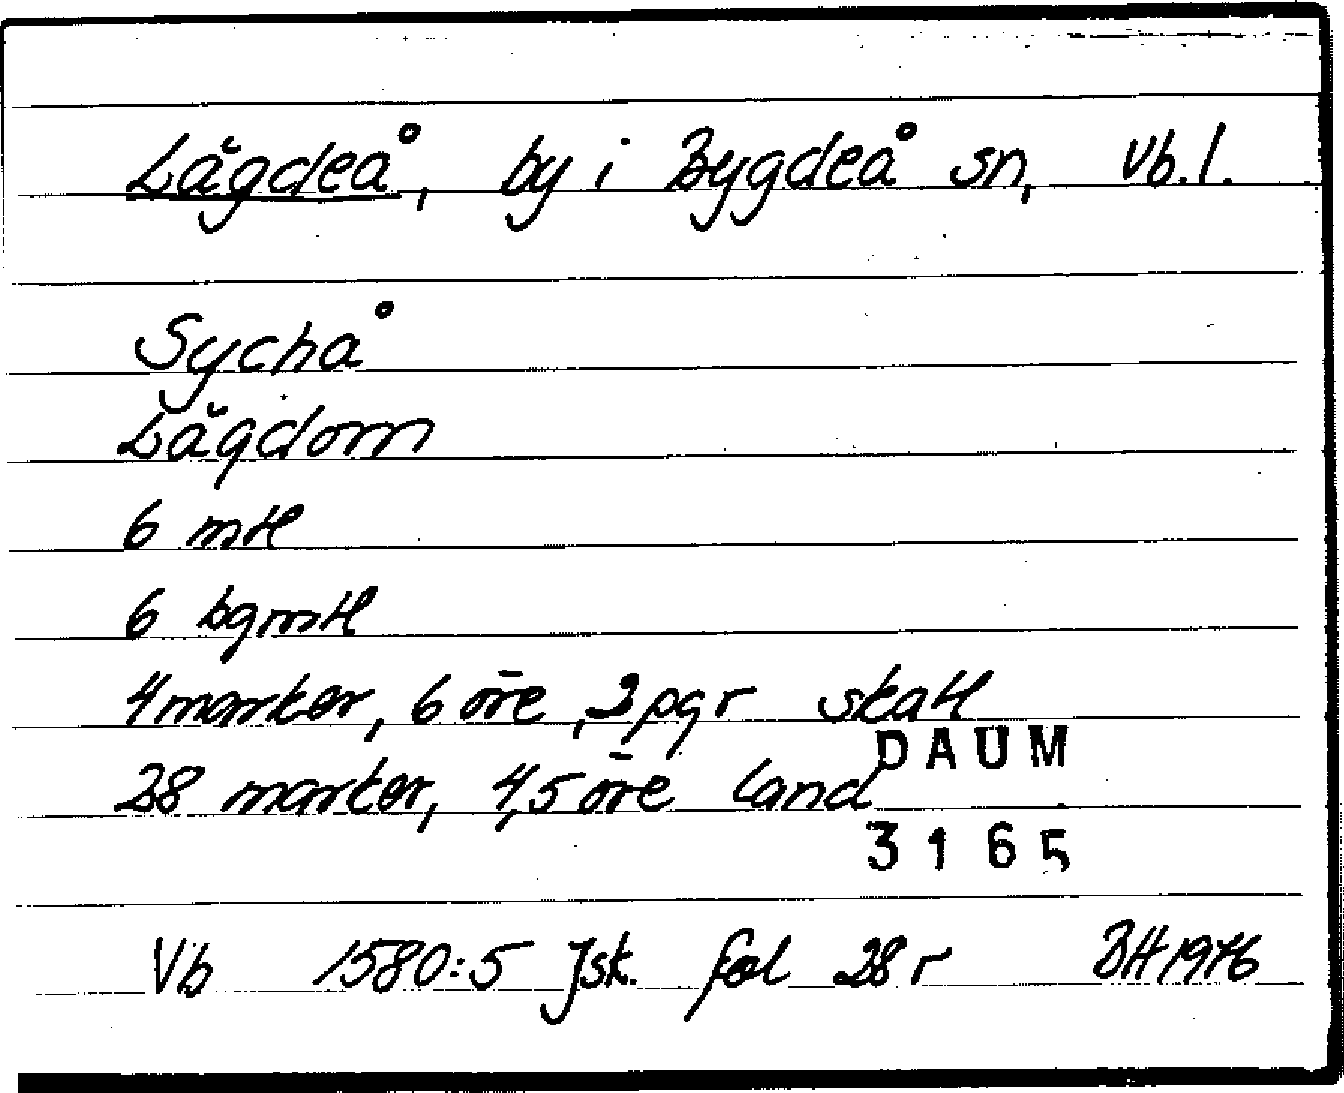 Lăgdeå, by i Bygdeå sn, Vb.l.
Sychå
Lăgdom
6 mtl
6 bgmtl
4 marker, 6 öre, 3 pgr skatt
28 marker, 4,5 öre land
DAUM
3165
Vb 1580:5 Jsk. fol 28 r BH 1976